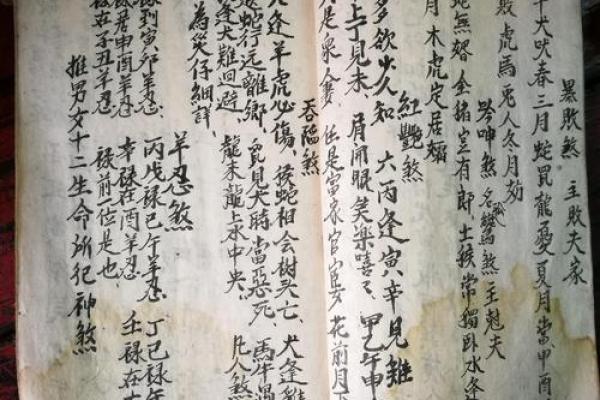 敗煞 主敗夫家
犬吠春三月 蛇鼠龍憂夏月當甲酉
敗虎馬兔人冬月劾
吟呻煞 名孤鸞煞 主尅夫
蛇無婿 金猪豈有郎 土猴常獨卧水逢
月木虎定居孀
紅艷煞
多欲少人知 六丙逢寅辛見雞
上丁見未 眉開眼笑樂嘻 甲乙午申
是众人妻 任是富家官宦女 花前月下
吞陷煞
逢羊虎必傷 猴蛇相会树头亡 犬逢雞
蛇行远離鄉 鼠見犬時當惡死 馬牛遇
逢犬難迴避 龍来龍上水中央 凡人煞
為災仔細詳
羊忍煞
祿到寅卯羊忍 丙戊祿巳午羊忍 丁己祿午
祿居申酉羊忍 辛祿在酉羊忍 壬祿在
祿在子丑羊忍 祿前一位是也
推男女十二生命所犯神煞